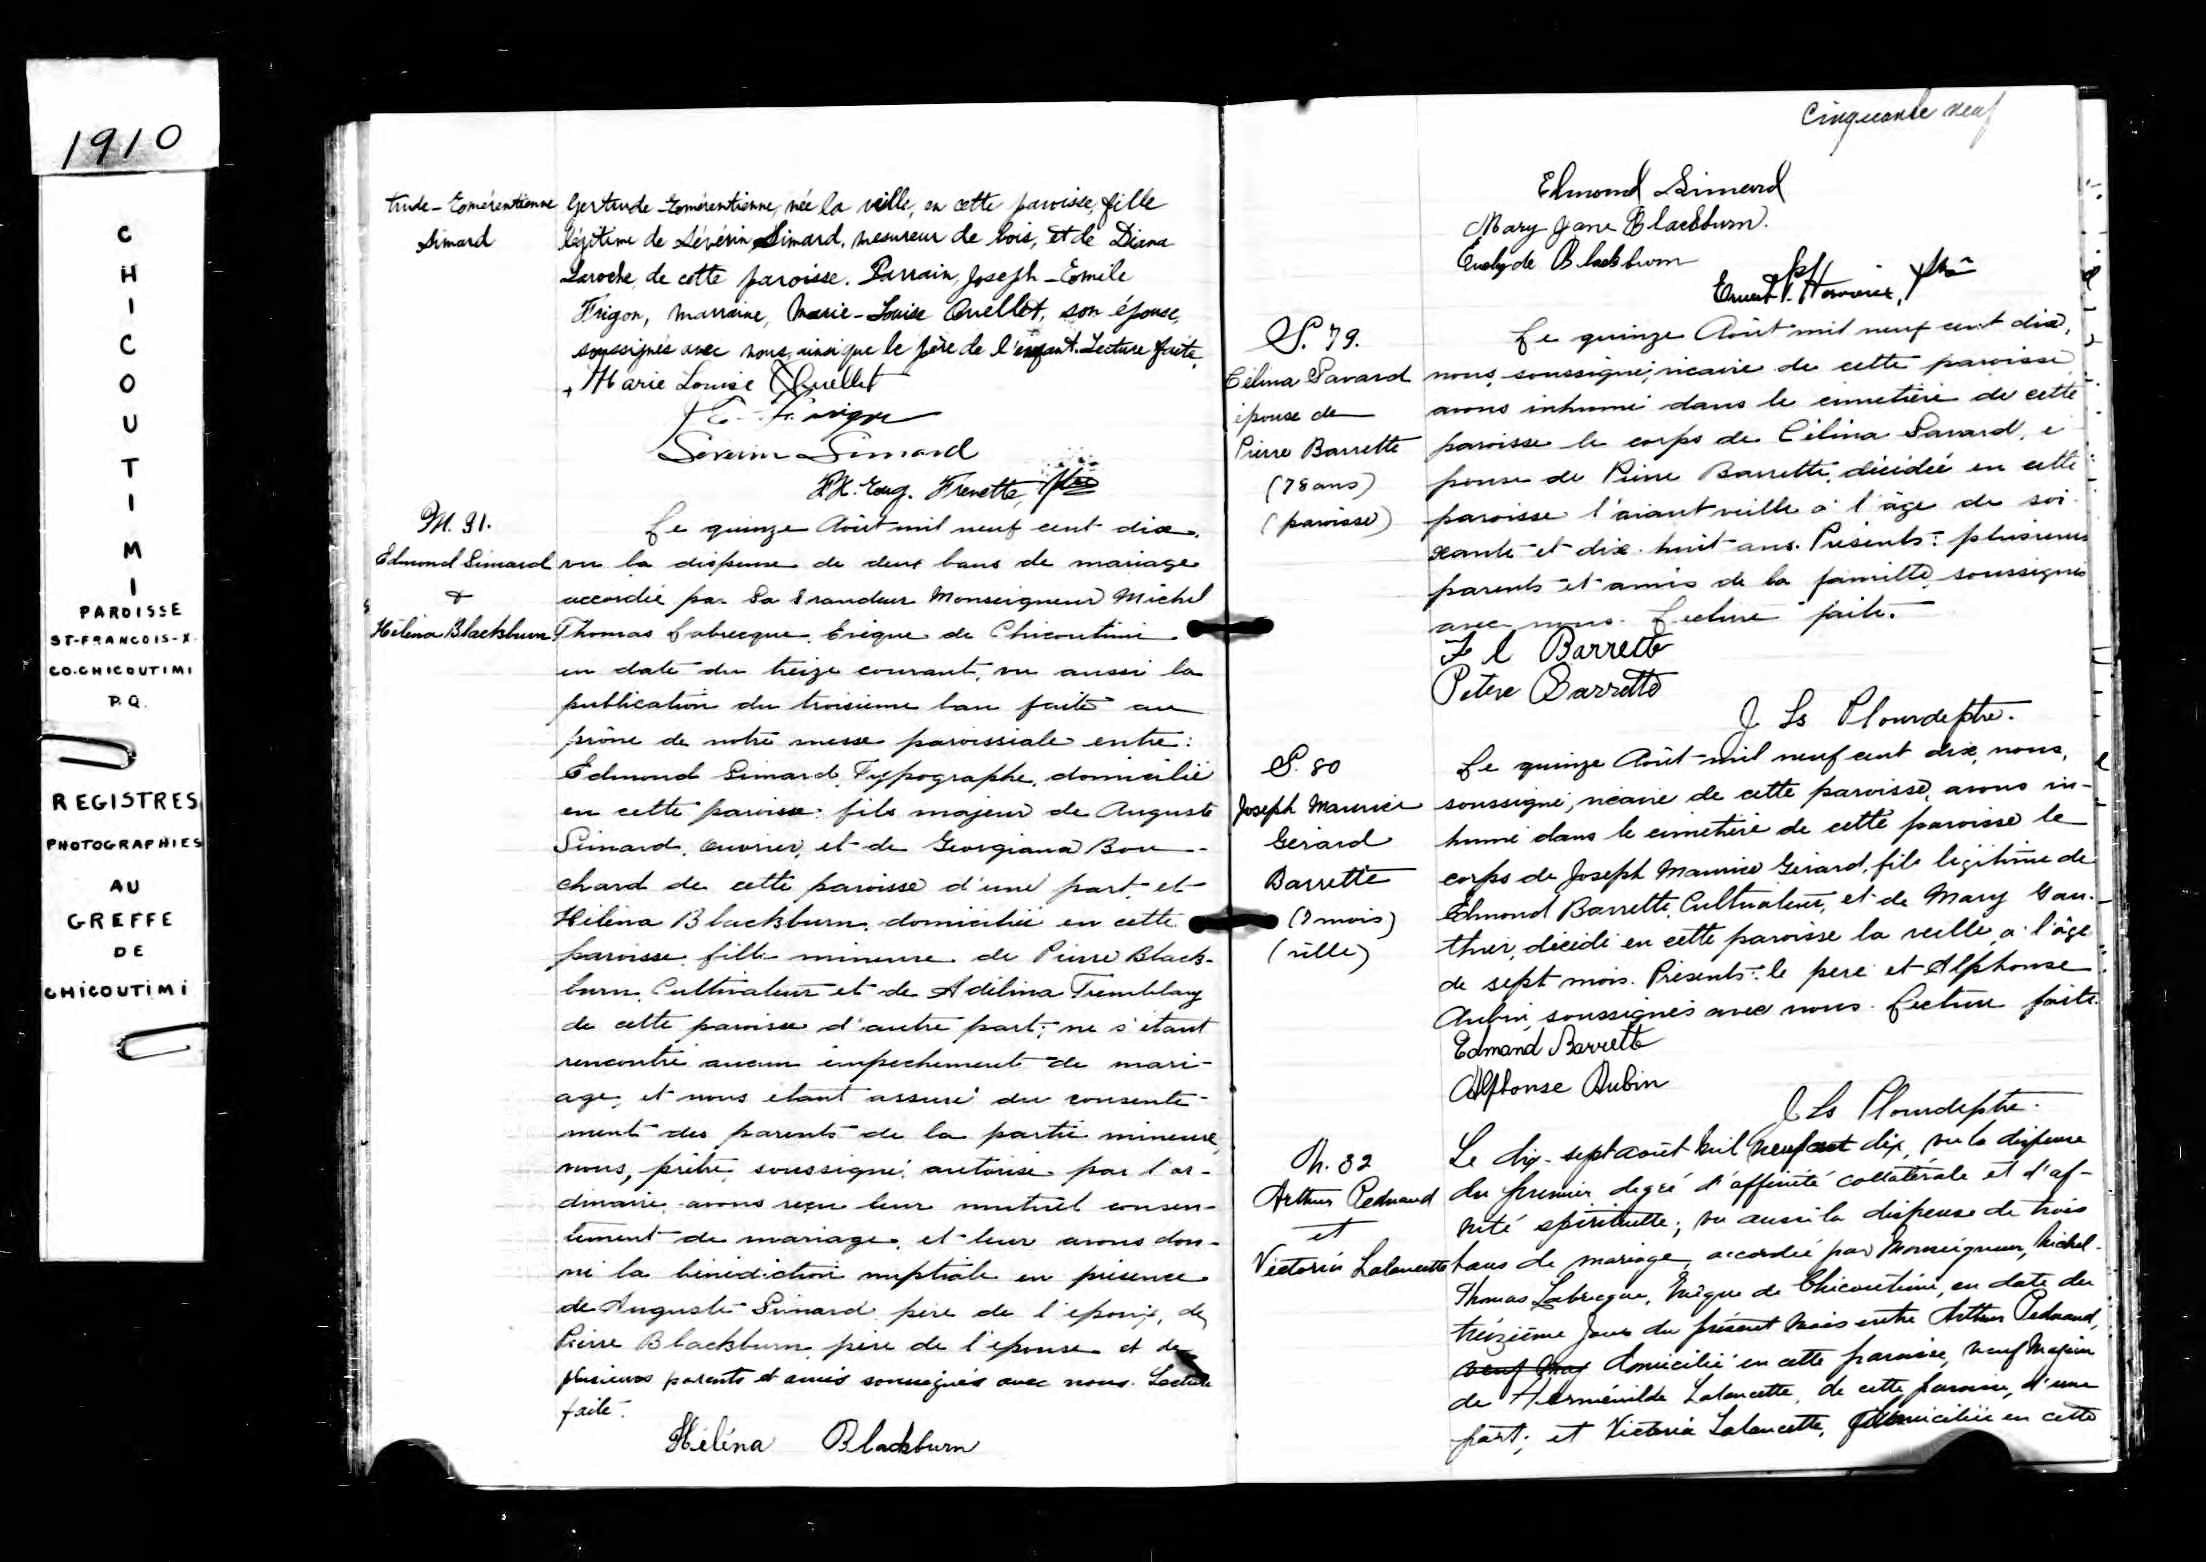 1910
CHICOUTIMI
PAROISSE
ST-FRANCOIS-X.
CO. CHICOUTIMI
P.Q.
REGISTRES
PHOTOGRAPHIES
AU
GREFFE
DE
CHICOUTIMI
trude-Esmérentienne
Simard
Gertrude-Esmérentienne, née la veille, en cette paroisse, fille
légitime de Sévérin Simard, mesureur de bois, et de Diana
Laroche, de cette paroisse. Parrain, Joseph-Esmile
Frigon, marraine, Marie-Louise Ouellet, son épouse,
soussignés avec nous, ainsi que le père de l'enfant. Lecture faite.
Marie Louise Ouellet
Severin Simard
Eug. Frenette, ptre
M. 31.
Edmond Simard
&
Héléna Blackburn
Le quinze Août mil neuf cent dix,
vu la dispense de deux bans de mariage
accordée par Sa Grandeur Monseigneur Michel
Thomas Labrecque, Evêque de Chicoutimi
en date du treize courant, vu aussi la
publication du troisième ban faite au
prône de notre messe paroissiale entre:
Edmond Simard, Typographe, domicilié
en cette paroisse, fils majeur de Auguste
Simard, ouvrier, et de Georgiana Bou-
chard de cette paroisse d'une part, et
Héléna Blackburn, domiciliée en cette
paroisse, fille mineure de Pierre Black-
burn, Cultivateur et de Adélina Tremblay
de cette paroisse d'autre part; ne s'étant
rencontré aucun empechement de mari-
age, et nous etant assuré du consente-
ment des parents de la partie mineure,
nous, prêtre, soussigné, autorisé par l'or-
dinaire, avons reçu leur mutuel consen-
tement de mariage, et leur avons don-
né la bénédiction nuptiale en présence
de Auguste Simard père de l'époux, de
Pierre Blackburn, père de l'épouse et de
plusieurs parents et amis soussignés avec nous. Lecture
faite.
Héléna Blackburn
Cinquante neuf
Edmond Simard
Mary Jane Blackburn.
Blackburn
S. 79.
Célina Savard
épouse de
Pierre Barrette
(78 ans)
(paroisse)
Le quinze Août mil neuf cent dix,
nous, soussigné, vicaire de cette paroisse
avons inhumé dans le cimetière de cette
paroisse le corps de Célina Savard, é
pouse de Pierre Barrette, décédée en cette
paroisse l'avant veille à l'âge de soi-
xante et dix-huit ans. Présents: plusieurs
parents et amis de la famille soussignés
avec nous. Lecture faite.
Barrette
Petere Barrette
J Ls Plourde ptre.
S. 80
Joseph Maurice
Gérard
Barrette
(7 mois)
(ville)
Le quinze Août mil neuf cent dix, nous,
soussigné, vicaire de cette paroisse, avons in-
humé dans le cimetière de cette paroisse le
corps de Joseph Maurice Gérard, fils légitime de
Edmond Barrette, Cultivateur, et de Mary Gau-
thier, décédé en cette paroisse la veille, à l'âge
de sept mois. Présents: le père et Alphonse
Aubin, soussignés avec nous. Lecture faite.
Edmond Barrette
Alphonse Aubin
J Ls Plourde ptre.
M. 32
Arthur Pednaud
et
Victoria Lalancette
Le dix-sept août mil neuf cent dix, vu la dispense
du premier degré d'affinité collatérale et d'af-
nité spirituelle; vu aussi la dispense de trois
bans de mariage, accordée par Monseigneur, Michel-
Thomas Labrecque, Evêque de Chicoutimi, en date du
treizième jour du présent mois entre Arthur Pednaud,
domicilié en cette paroisse, veuf majeur
de Herménilde Lalancette, de cette paroisse, d'une
part; et Victoria Lalancette, domiciliée en cette